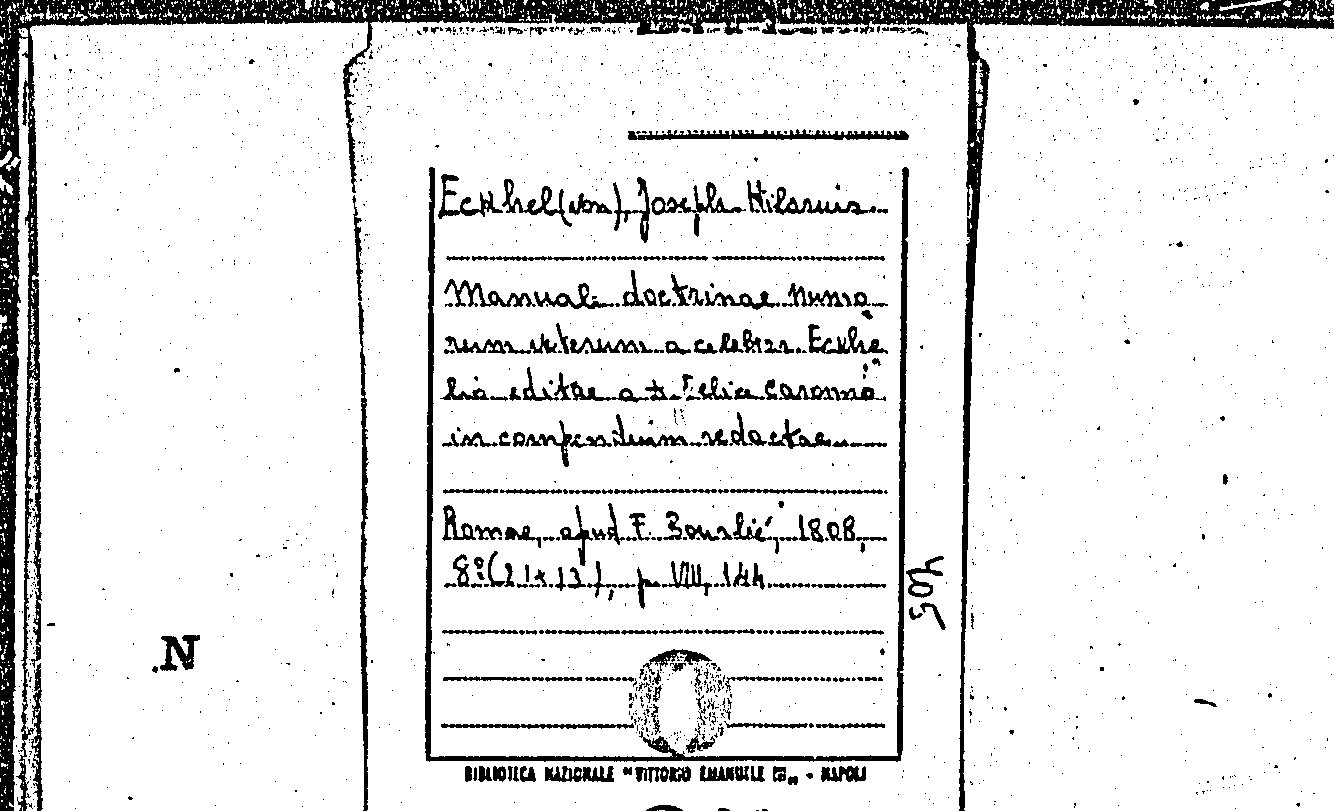 Eckhel (von), Joseph Hilarius.
Manuale doctrinae numo
rum veterum a celebri Eckhe
lio editae a d. Felice Caronno
in compendium redactae.
Romae, apud F. Bourlié, 1808,
8º (21x13), p. VIII, 144
405
N
BIBLIOTECA NAZIONALE "VITTORIO EMANUELE III" - NAPOLI